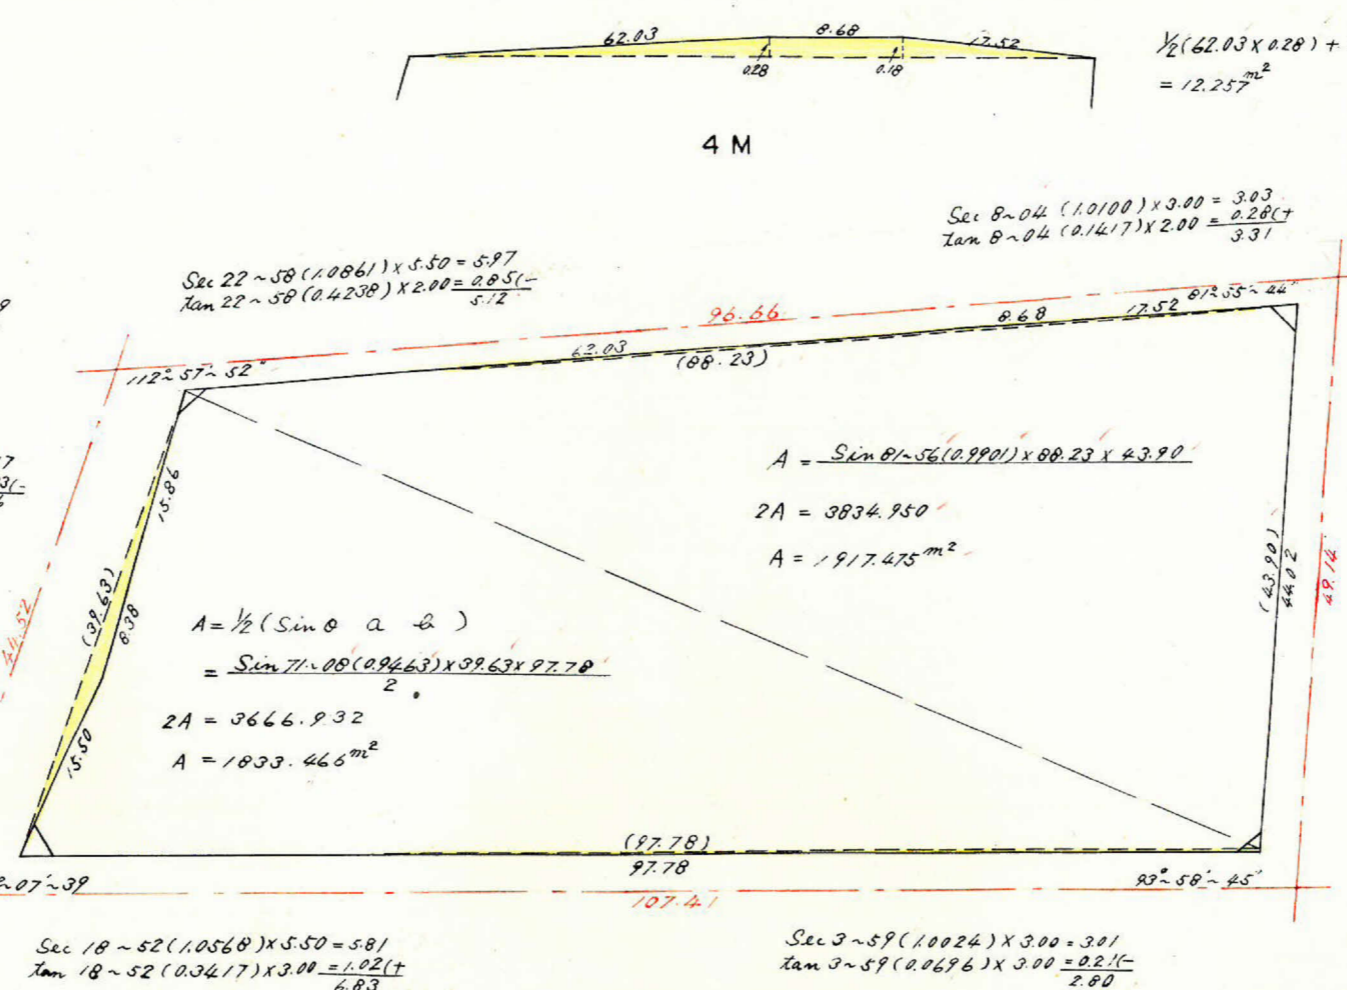 62.03
8.68
17.52
0.28
0.18
½(62.03 x 0.28) +
= 12.257 m²
4 M
Sec 8~04 (1.0100) x 3.00 = 3.03
tan 8~04 (0.1417) x 2.00 = 0.28(+
3.31
Sec 22~58 (1.0861) x 5.50 = 5.97
tan 22~58 (0.4238) x 2.00 = 0.85(-
5.12
96.66
81°~55'~44"
8.68
17.52
62.03
(88.23)
112°~57'~52"
A = Sin 81~56 (0.9901) x 88.23 x 43.90
2A = 3834.950
A = 1917.475 m²
15.86
(39.63)
8.38
44.52
15.50
(43.90)
44.02
49.14
A = ½ (Sin θ a b)
= Sin 71~08 (0.9463) x 39.63 x 97.78
2
2A = 3666.932
A = 1833.466 m²
(97.78)
97.78
~07'~39
93°~58'~45"
107.41
Sec 18~52 (1.0568) x 5.50 = 5.81
tan 18~52 (0.3417) x 3.00 = 1.02(+
6.83
Sec 3~59 (1.0024) x 3.00 = 3.01
tan 3~59 (0.0696) x 3.00 = 0.21(-
2.80